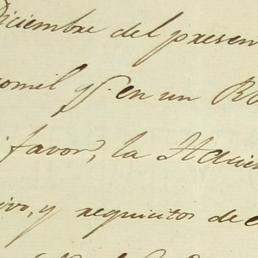 Diciembre del presen
comil y en un Ro
favor, la Hacien
ivo, y requicitos de